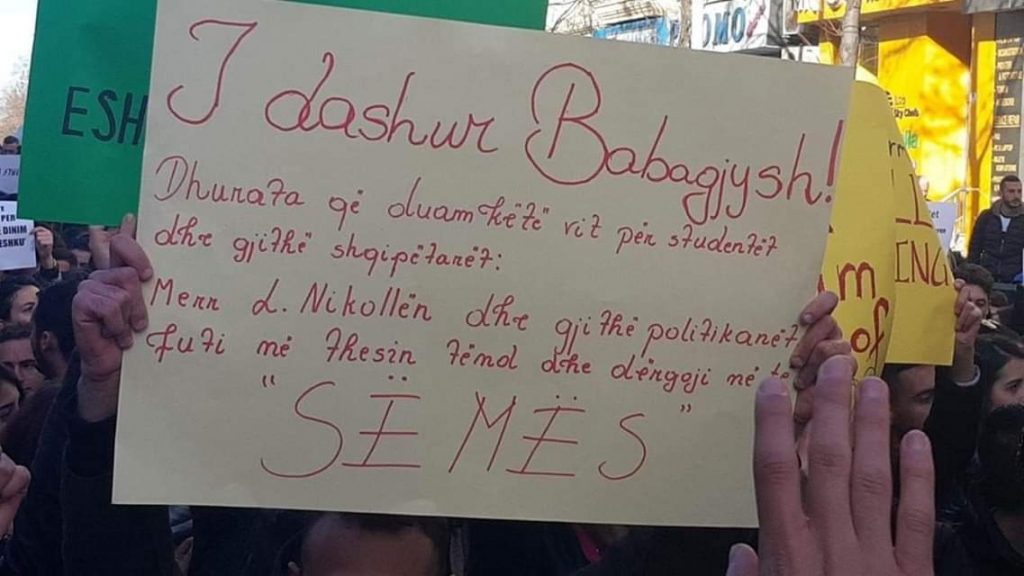 I dashur Babagjysh!
Dhurata që duam këtë vit për studentët
dhe gjithë shqipëtarët:
Merr L. Nikollën dhe gjithë politikanët
futi në thesin tënd dhe dërgoji në
"SË MËS"
ESH
PER
DINIM
ESHKU'
OMO
ING
m
of